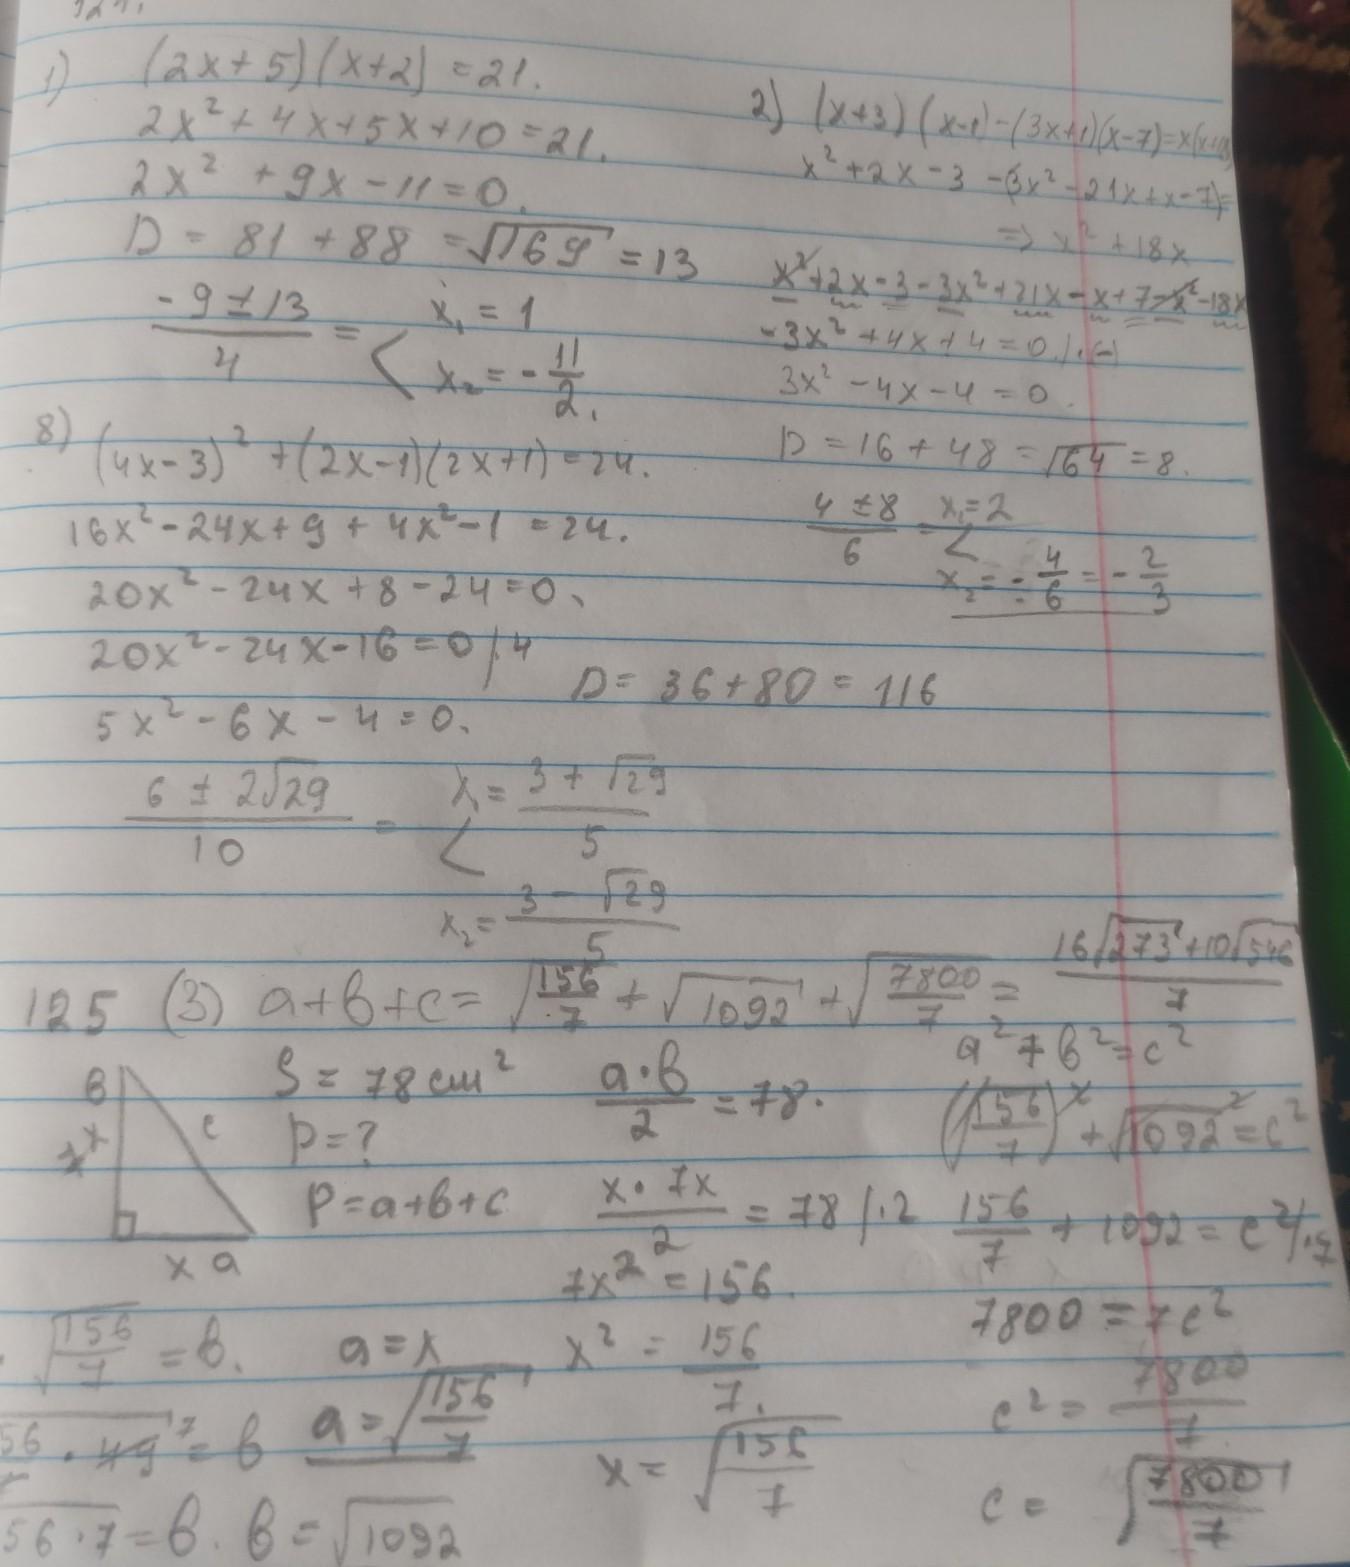 1) (2x+5)(x+2) = 21.
2x² + 4x + 5x + 10 = 21.
2x² + 9x - 11 = 0.
D = 81 + 88 = √169 = 13
(-9 ± 13)/4 = < x₁ = 1
x₂ = -11/2.
2) (x+3)(x-1) - (3x+1)(x-7) = x(x+18)
x² + 2x - 3 - (3x² - 21x + x - 7) =
=> x² + 18x
x² + 2x - 3 - 3x² + 21x - x + 7 - x² - 18x
-3x² + 4x + 4 = 0 /·(-)
3x² - 4x - 4 = 0.
D = 16 + 48 = √64 = 8.
(4 ± 8)/6 = < x₁ = 2
x₂ = -4/6 = -2/3
8) (4x-3)² + (2x-1)(2x+1) = 24.
16x² - 24x + 9 + 4x² - 1 = 24.
20x² - 24x + 8 - 24 = 0.
20x² - 24x - 16 = 0 /:4
5x² - 6x - 4 = 0.
D = 36 + 80 = 116
(6 ± 2√29)/10 = < x₁ = (3 + √29)/5
x₂ = (3 - √29)/5
125 (3) a+b+c = √(156/7) + √1092 + √(7800/7) = (16√273 + 10√546)/7
b
c
x a
S = 78 см²
P = ?
P = a+b+c
a·b/2 = 78.
x·7x/2 = 78 /·2
7x² = 156.
x² = 156/7.
x = √(156/7)
a² + b² = c²
(√(156/7))² + √1092² = c²
156/7 + 1092 = c² /·7
7800 = 7c²
c² = 7800/7
c = √(7800/7)
√(156/7) = b.
56 · 49 7 = b
56·7 = b. b = √1092
a = x
a = √(156/7)